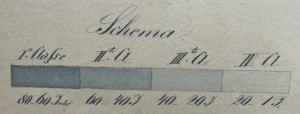 Schema.
Iste Classe II.te Cl III.te Cl IV Cl
80. 60. 60. 40. 40. 20. 20. 1.